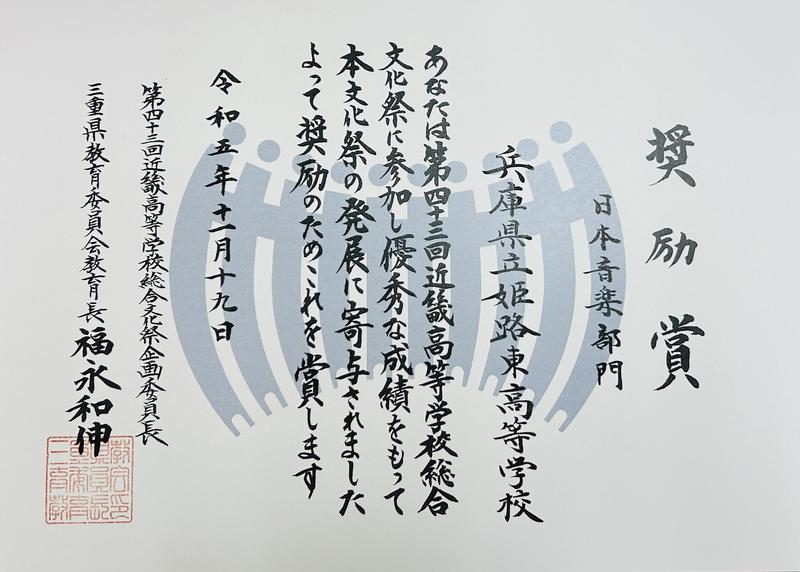 奨励賞
日本音楽部門
兵庫県立姫路東高等学校
あなたは第四十三回近畿高等学校総合
文化祭に参加し優秀な成績をもって
本文化祭の発展に寄与されました
よって奨励のためこれを賞します
令和五年十一月十九日
第四十三回近畿高等学校総合文化祭企画委員長
三重県教育委員会教育長 福永和伸